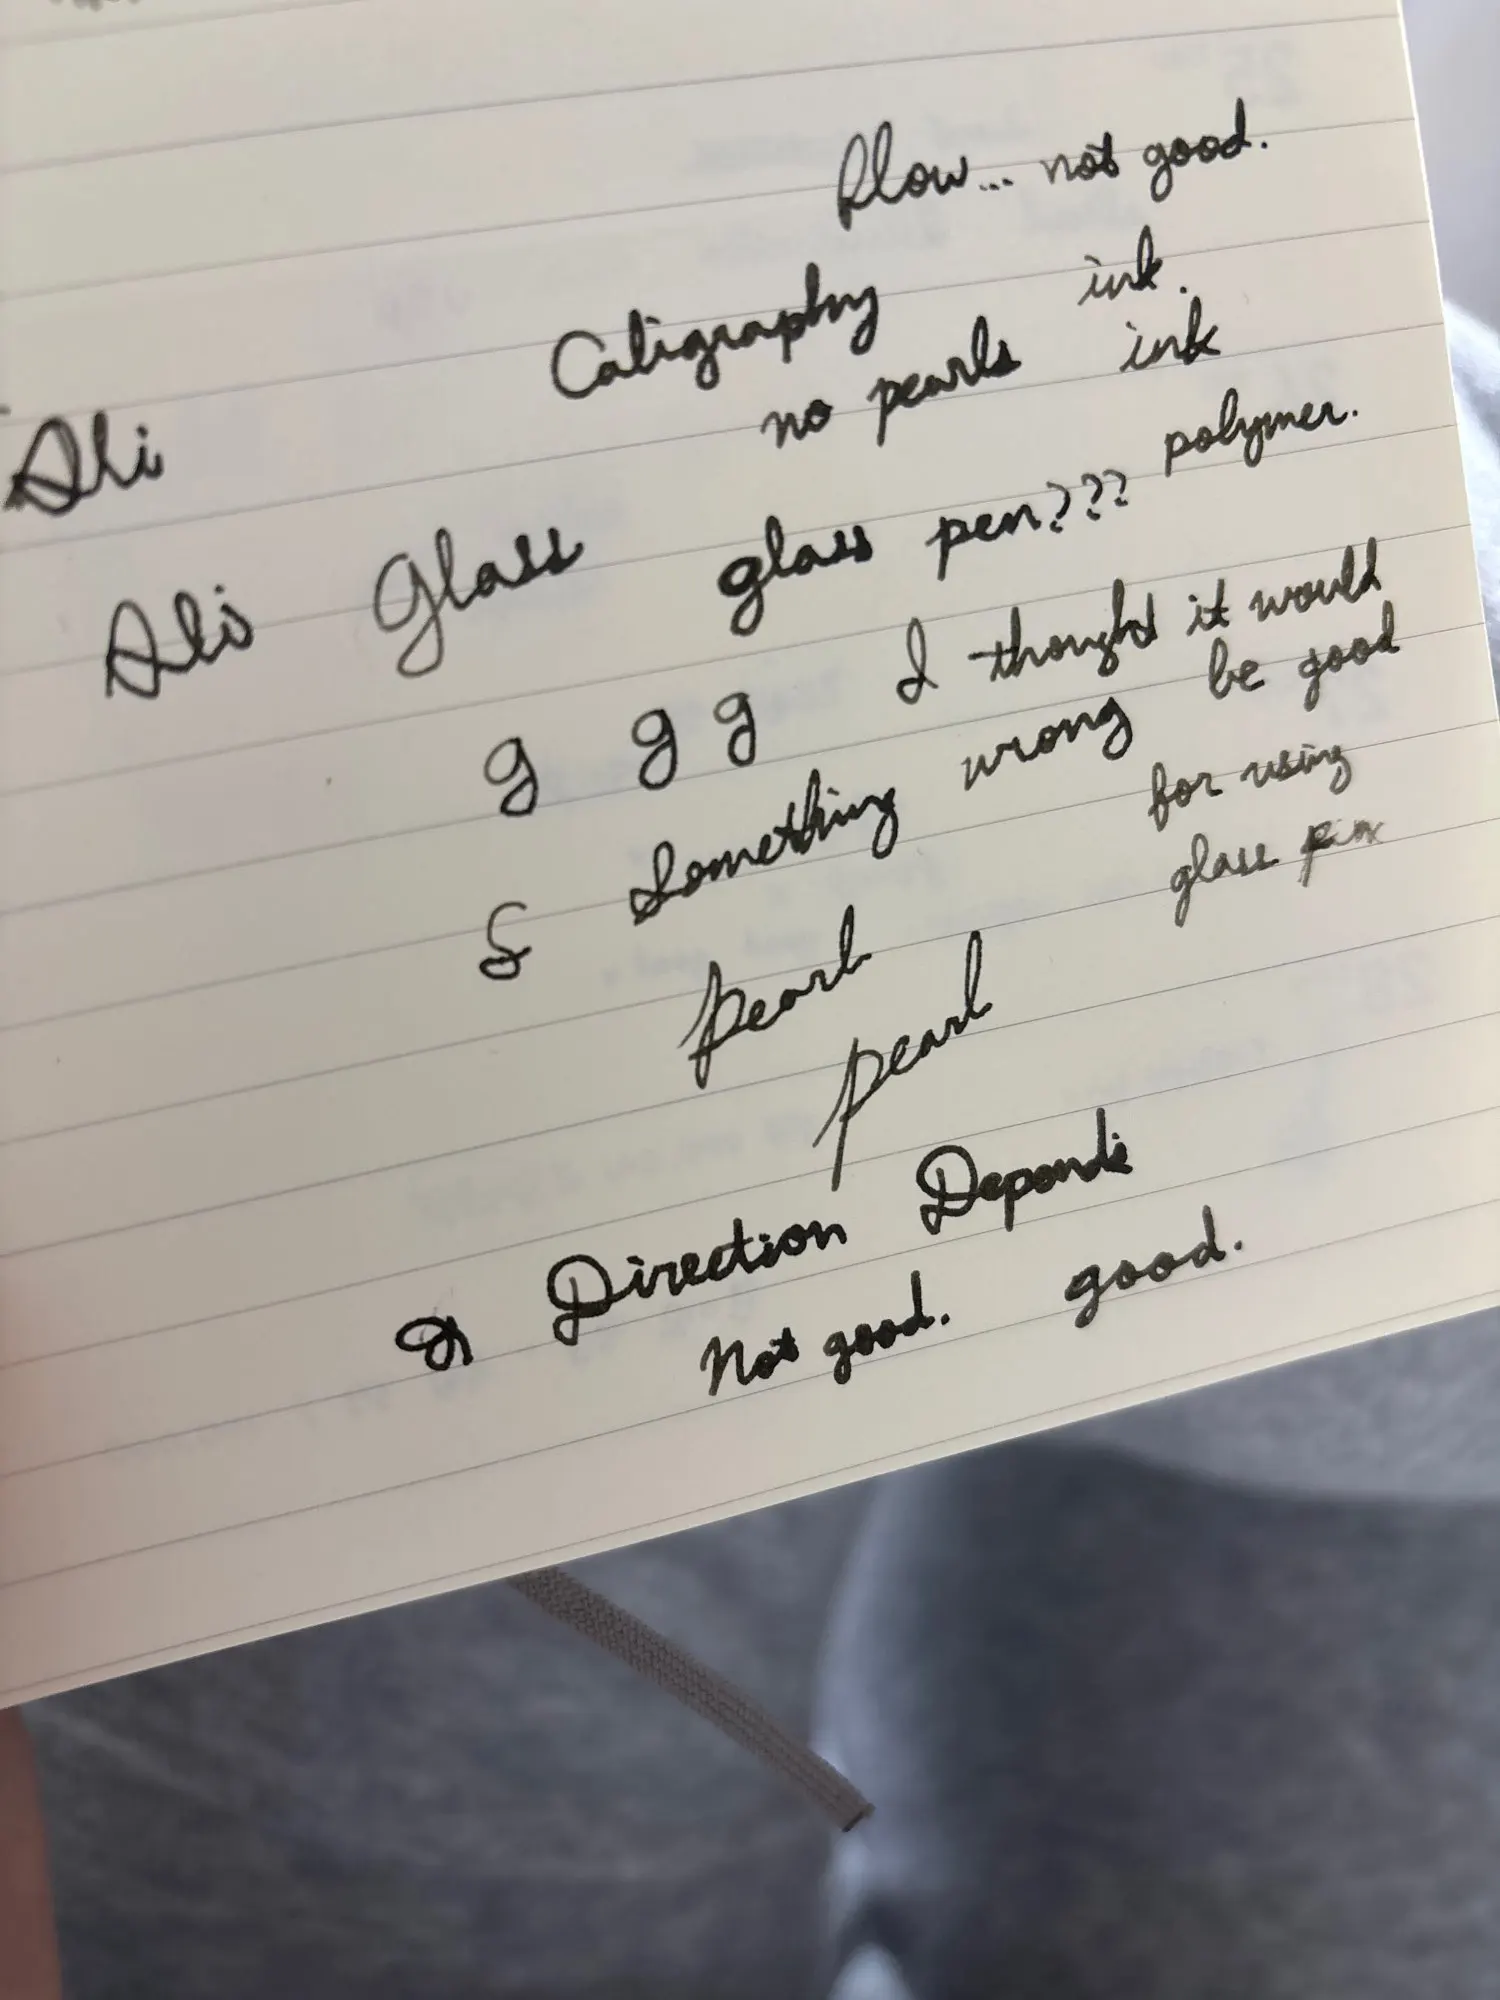 flow... not good.
Caligraphy ink.
no pearls ink
Ali
polymer.
Alis Glass glass pen???
I thought it would
g g g be good
Something wrong
for using
S glass pen
pearl
pearl
Direction Depends
Not good. good.